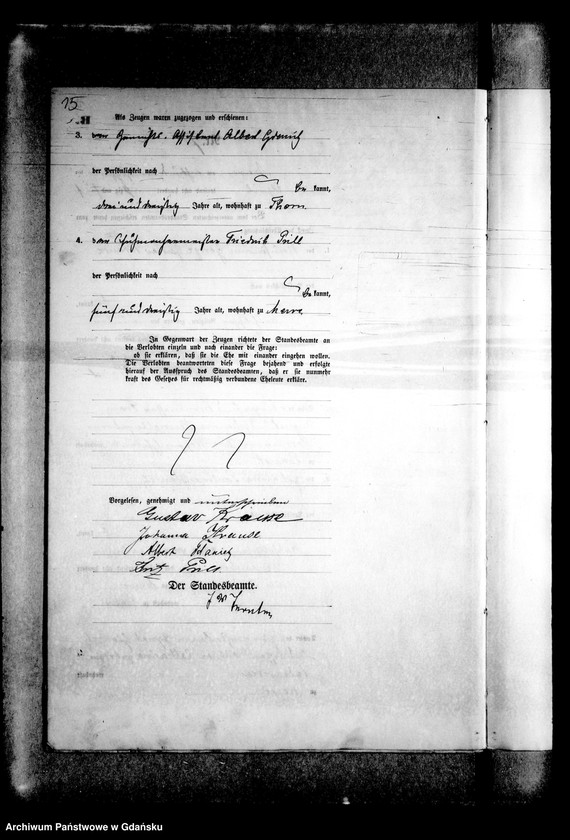 15
Als Zeugen waren zugezogen und erschienen:
3. Albert
der Persönlichkeit nach
be kannt,
dreiunddreißig Jahre alt, wohnhaft zu Thorn
4. der Schuhmachermeister Friedrich Prill
der Persönlichkeit nach
be kannt,
fünfunddreißig Jahre alt, wohnhaft zu Mewe
In Gegenwart der Zeugen richtete der Standesbeamte an
die Verlobten einzeln und nach einander die Frage:
ob sie erklären, daß sie die Ehe mit einander eingehen wollen.
Die Verlobten beantworteten diese Frage bejahend und erfolgte
hierauf der Ausspruch des Standesbeamten, daß er sie nunmehr
kraft des Gesetzes für rechtmäßig verbundene Eheleute erkläre.
Vorgelesen, genehmigt und unterschrieben
Gustav Krause
Johanna Krause
Albert
Fritz Prill
Der Standesbeamte.
Archiwum Państwowe w Gdańsku